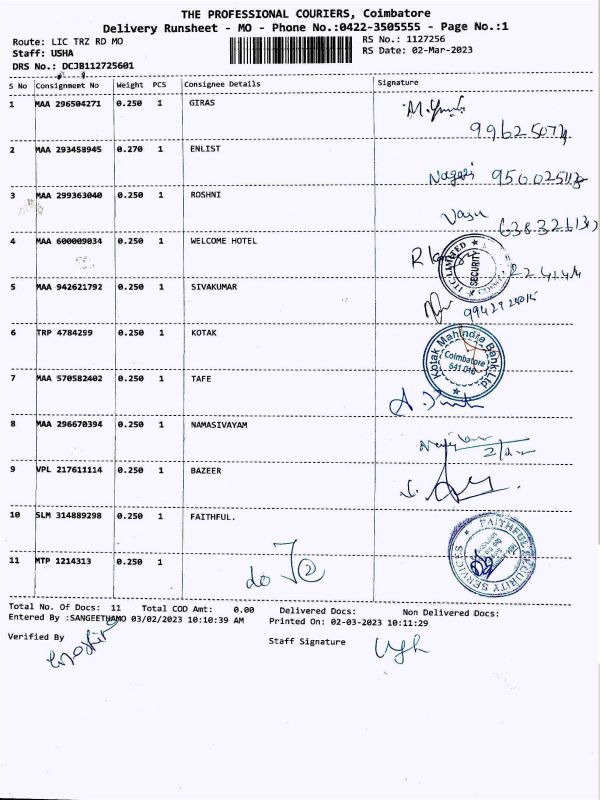 THE PROFESSIONAL COURIERS, Coimbatore
Delivery Runsheet - MO - Phone No.:0422-3505555 - Page No.:1
Route: LIC TRZ RD MO
RS No.: 1127256
Staff: USHA
RS Date: 02-Mar-2023
DRS No.: DCJB112725601
S No Consignment No Weight PCS Consignee Details Signature
1 MAA 296504271 0.250 1 GIRAS
2 MAA 293458945 0.270 1 ENLIST
Nagaraj
3 MAA 299363040 0.250 1 ROSHNI
Vasu
4 MAA 600009034 0.250 1 WELCOME HOTEL
ITC LIMITED
SECURITY
5 MAA 942621792 0.250 1 SIVAKUMAR
6 TRP 4784299 0.250 1 KOTAK
Kotak Mahindra Bank Ltd
Coimbatore
641 018
7 MAA 570582402 0.250 1 TAFE
8 MAA 296670394 0.250 1 NAMASIVAYAM
9 VPL 217611114 0.250 1 BAZEER
10 SLM 314889298 0.250 1 FAITHFUL.
FAITHFUL SECURITY SERVICES
11 MTP 1214313 0.250 1
do
2
Total No. Of Docs: 11 Total COD Amt: 0.00 Delivered Docs: Non Delivered Docs:
Entered By :SANGEETHAMO 03/02/2023 10:10:39 AM Printed On: 02-03-2023 10:11:29
Verified By
Staff Signature